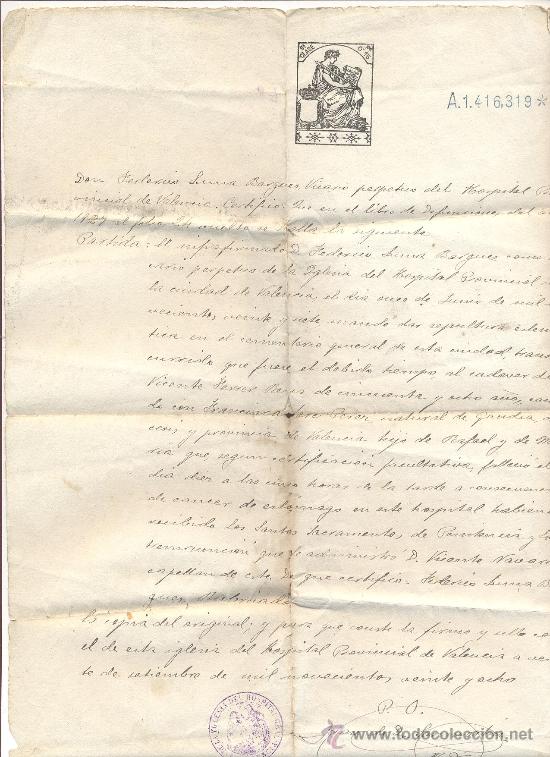 A.1.416,319*
Don Federico Barques Vicario perpetuo del Hospital Pro
vincial de Valencia. Certifico: Que en el libro de Defunciones del a
1927 al folio vuelto se halla la siguiente
Partida: El infrafirmado D. Federico Barques como
cario perpetuo de la Iglesia del Hospital Provincial
la ciudad de Valencia, el dia once de Junio de mil
vecientos veinte y siete mando dar sepultura
tica en el cementerio general de esta ciudad trans
currido que fuese el debido tiempo al cadaver de
Vicente de cincuenta y ocho años, ca
do con Francisca Perez natural de Gandia
y provincia de Valencia hijo de Rafael y de
que segun certificacion facultativa, falleció el
dia diez a las cinco horas de la tarde a consecuencia
de cancer de estomago en este hospital habiendo
recibido los Santos Sacramentos de Penitencia y
tremauncion que le administró D. Vicente Navarro
capellan de este, de que certifico. Federico
Rubricado
Es copia del original, y para que conste la firmo y sello con
el de esta iglesia del Hospital Provincial de Valencia a
te de setiembre de mil novecientos veinte y ocho
P. O.
todocoleccion
www.todocoleccion.net